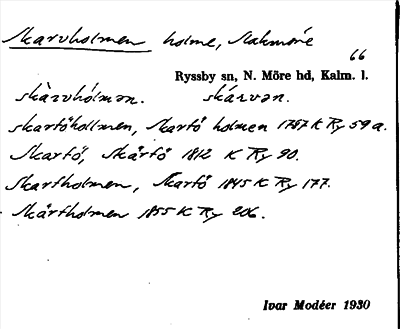 Skarvholmen holme, Skahmöre
66
Ryssby sn, N. Möre hd, Kalm. l.
skàrvhólmən. skárvən.
skartöhollmen, Skartö holmen 1787 K Ry 59 a.
Skartö, Skårtö 1812 K Ry 90.
Skartholmen, Skartö 1845 K Ry 177.
Skårtholmen 1855 K Ry 206.
Ivar Modéer 1930